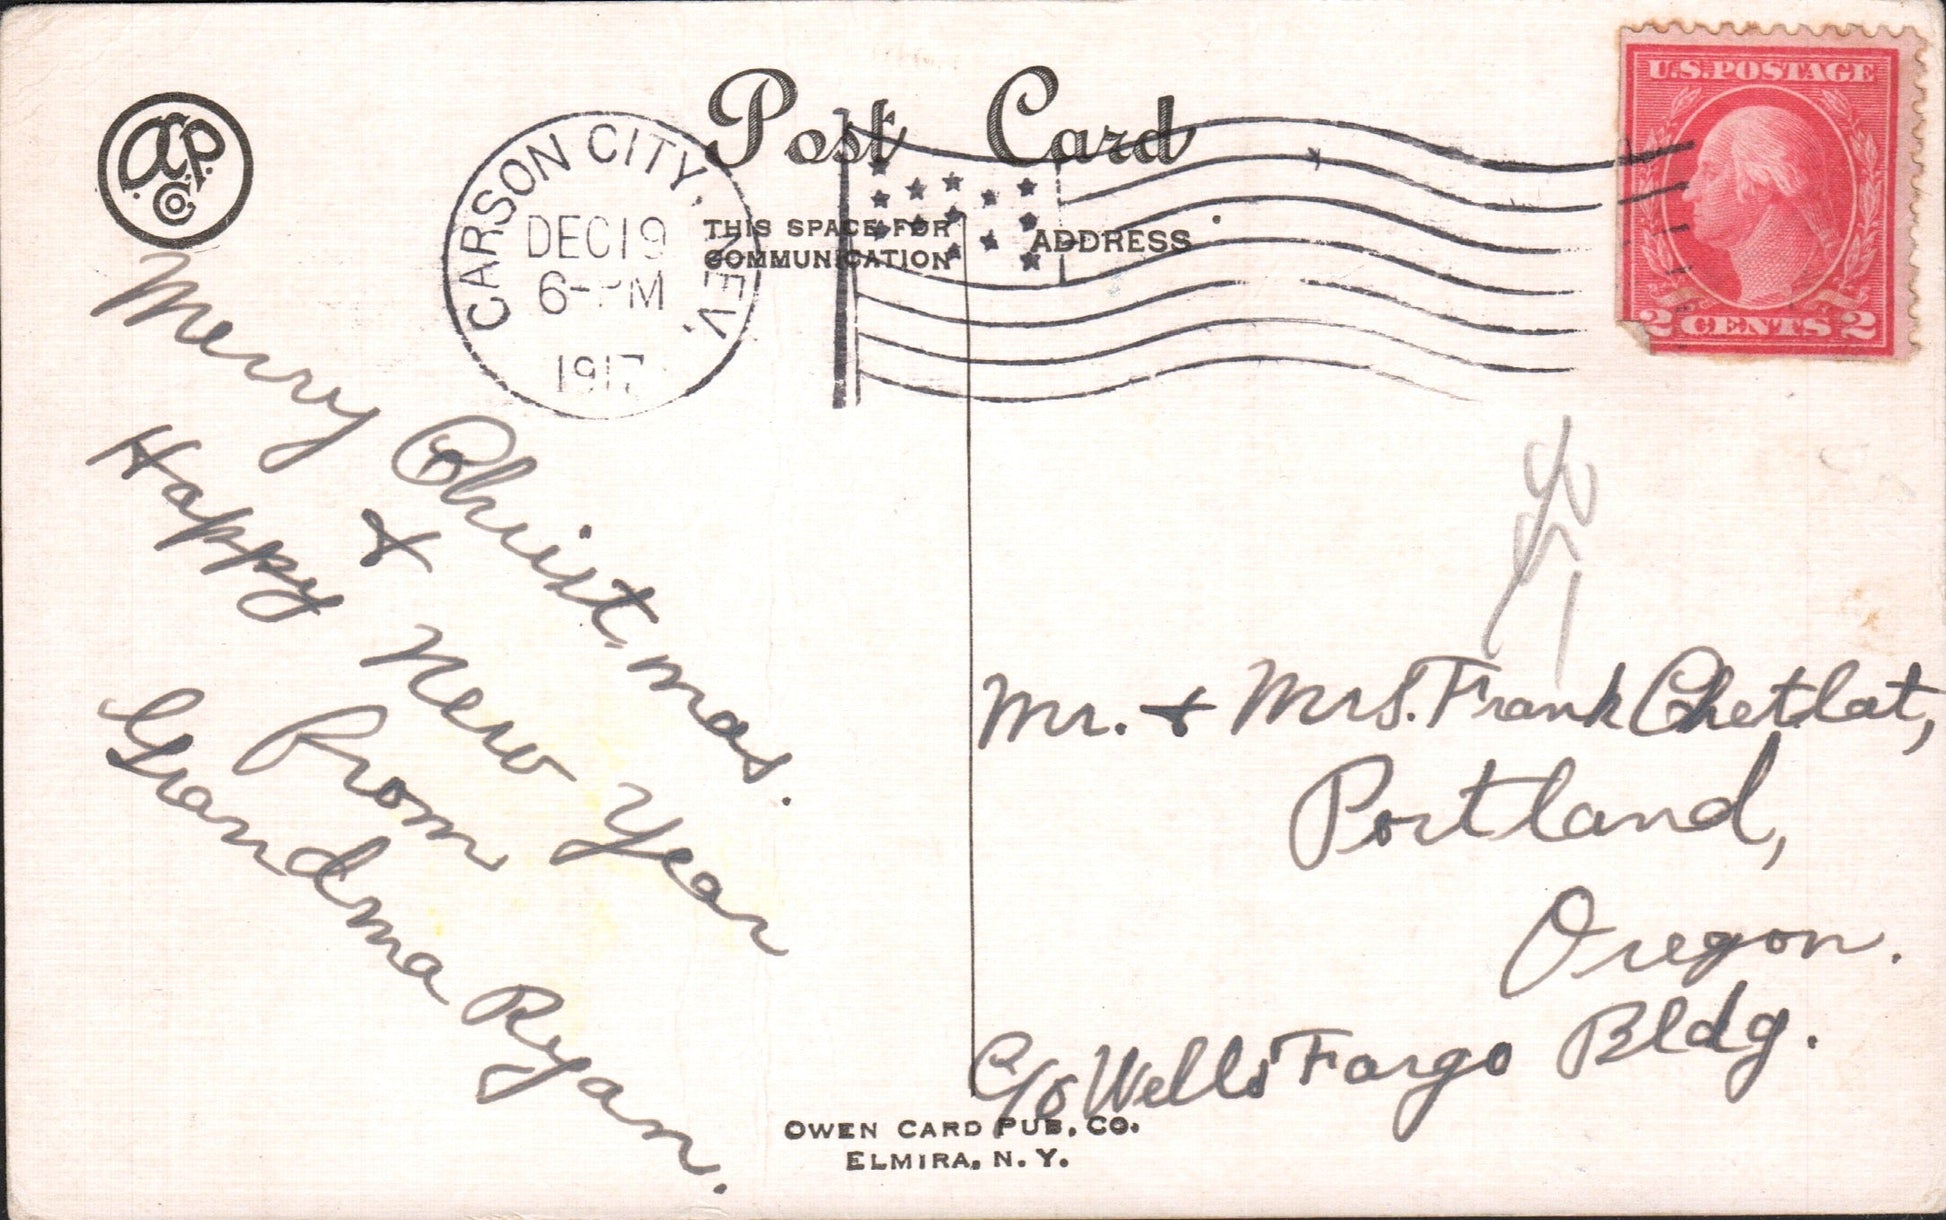 Post Card
CARSON CITY, NEV.
DEC 19
6-PM
1917
U.S. POSTAGE
2 CENTS 2
THIS SPACE FOR
COMMUNICATION
ADDRESS
Merry Christmas.
&
Happy New Year
From
Grandma Ryan.
Mr. & Mrs. Frank Chetlat,
Portland,
Oregon.
C/o Wells Fargo Bldg.
OWEN CARD PUB. CO.
ELMIRA, N. Y.